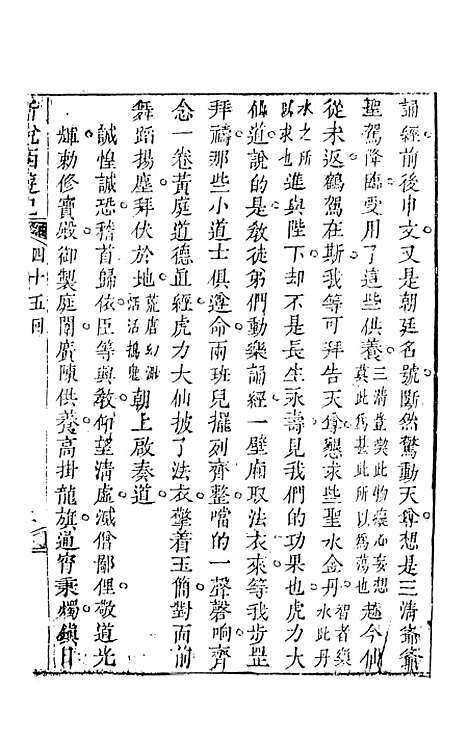 誦經前後申文又是朝廷名號斷然驚動天尊想是三清爺爺
聖駕降臨受用了這些供養三清豈喫此物痴心妄想莫此爲甚此所以爲萬也趂今仙
從未返鶴駕在斯我等可拜告天尊懇求些聖水金丹智者樂水此丹
水之所以求也進與陛下却不是長生永壽見我們的功果也虎力大
仙道說的是敎徒弟們動樂誦經一壁廂取法衣來等我步罡
拜禱那些小道士俱遵命兩班兒擺列齊整噹的一聲磬响齊
念一卷黃庭道德眞經虎力大仙披了法衣擎着玉簡對面前
舞蹈揚塵拜伏於地荒唐幻謝活活搗鬼朝上啟奏道
誠惶誠恐稽首歸依臣等興敎仰望清虛滅僧鄙俚敬道光
輝勅修寶殿御製庭闈廣陳供養高掛龍旗通宵秉燭鎮日
四十五囘